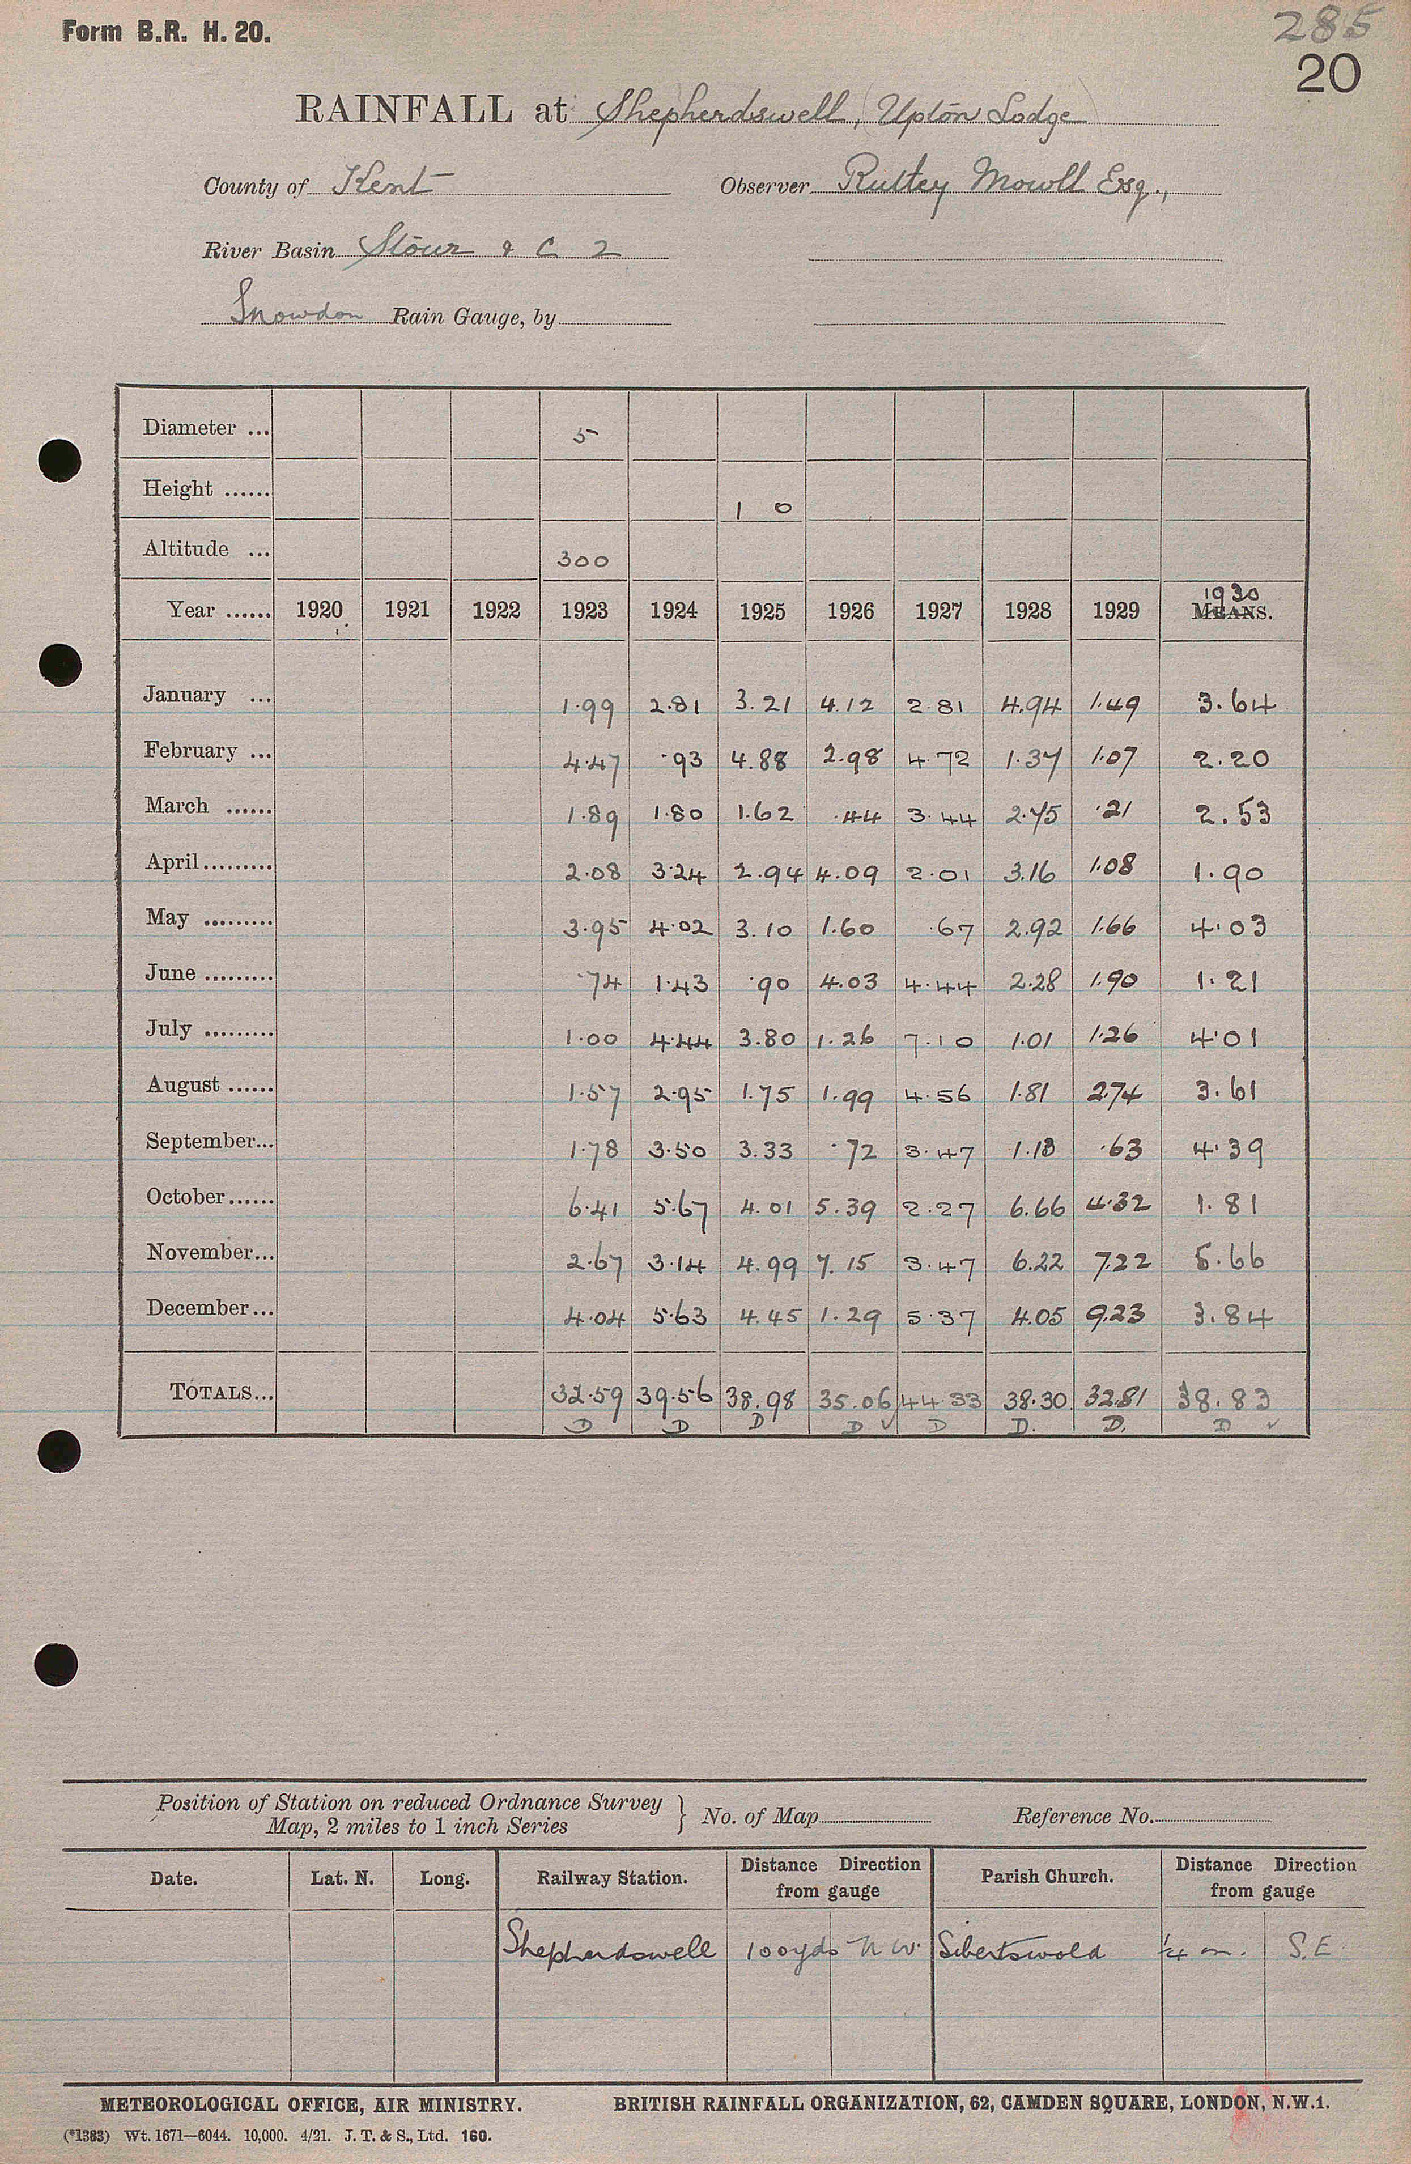 Form B.R. H. 20.
285
20
RAINFALL at Shepherdswell, (Upton Lodge)
County of Kent Observer Rutley Mowll Esq.,
River Basin Stour & C 2
Snowdon Rain Gauge, by
Diameter ... 5
Height ...... 1 0
Altitude ... 300
Year ...... 1920 1921 1922 1923 1924 1925 1926 1927 1928 1929 1930 MEANS.
January ... 1.99 2.81 3.21 4.12 2.81 4.94 1.49 3.64
February ... 4.47 .93 4.88 2.98 4.72 1.37 1.07 2.20
March ...... 1.89 1.80 1.62 .44 3.44 2.75 .21 2.53
April ......... 2.08 3.24 2.94 4.09 2.01 3.16 1.08 1.90
May ......... 3.95 4.02 3.10 1.60 .67 2.92 1.66 4.03
June ......... .74 1.43 .90 4.03 4.44 2.28 1.90 1.21
July ......... 1.00 4.44 3.80 1.26 7.10 1.01 1.26 4.01
August ...... 1.57 2.95 1.75 1.99 4.56 1.81 2.74 3.61
September... 1.78 3.50 3.33 .72 3.47 1.13 .63 4.39
October ...... 6.41 5.67 4.01 5.39 2.27 6.66 4.32 1.81
November... 2.67 3.14 4.99 7.15 3.47 6.22 7.22 5.66
December... 4.04 5.63 4.45 1.29 5.37 4.05 9.23 3.84
TOTALS... 32.59 39.56 38.98 35.06 44.33 38.30 32.81 38.83
D D D D ✓ D D. D. D ✓
Position of Station on reduced Ordnance Survey
Map, 2 miles to 1 inch Series } No. of Map Reference No.
Date. Lat. N. Long. Railway Station. Distance Direction from gauge Parish Church. Distance Direction from gauge
Shepherdswell 100yds N W. Sibertswold ¼ m. S.E.
METEOROLOGICAL OFFICE, AIR MINISTRY. BRITISH RAINFALL ORGANIZATION, 62, CAMDEN SQUARE, LONDON, N.W.1.
(*1383) Wt. 1671—6044. 10,000. 4/21. J. T. & S., Ltd. 160.